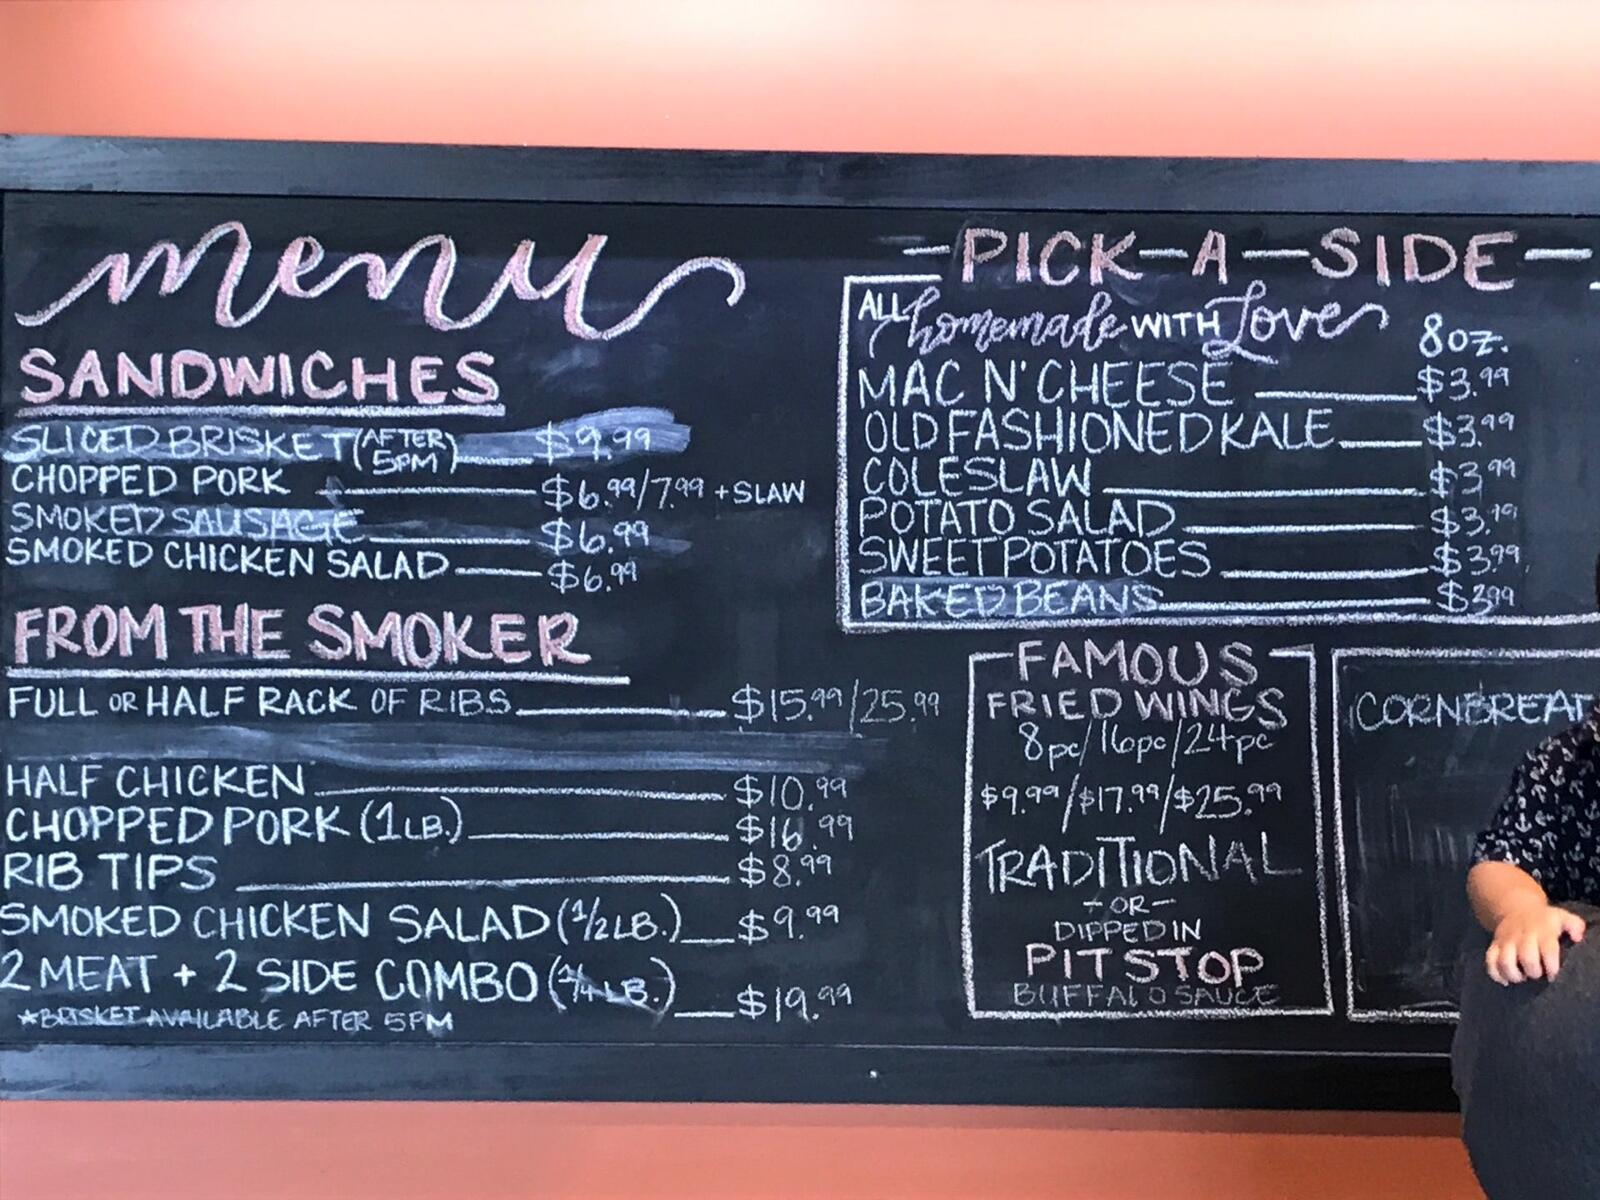 menu
SANDWICHES
SLICED BRISKET (AFTER 5PM) $9.99
CHOPPED PORK $6.99/7.99 + SLAW
SMOKED SAUSAGE $6.99
SMOKED CHICKEN SALAD $6.99
FROM THE SMOKER
FULL OR HALF RACK OF RIBS $15.99/25.99
HALF CHICKEN $10.99
CHOPPED PORK (1 LB.) $16.99
RIB TIPS $8.99
SMOKED CHICKEN SALAD (1/2 LB.) $9.99
2 MEAT + 2 SIDE COMBO (1/4 LB.) $19.99
*BRISKET AVAILABLE AFTER 5PM
PICK-A-SIDE
ALL homemade WITH Love 8oz.
MAC N' CHEESE $3.99
OLD FASHIONED KALE $3.99
COLESLAW $3.99
POTATO SALAD $3.99
SWEET POTATOES $3.99
BAKED BEANS $3.99
FAMOUS
FRIED WINGS
8pc/16pc/24pc
$9.99/$17.99/$25.99
TRADITIONAL
-OR-
DIPPED IN
PIT STOP
BUFFALO SAUCE